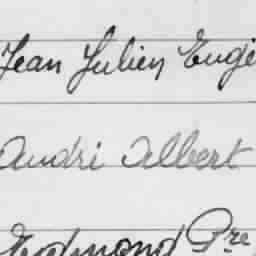 Jean Julien Eugè
André Albert
Edmond Pre